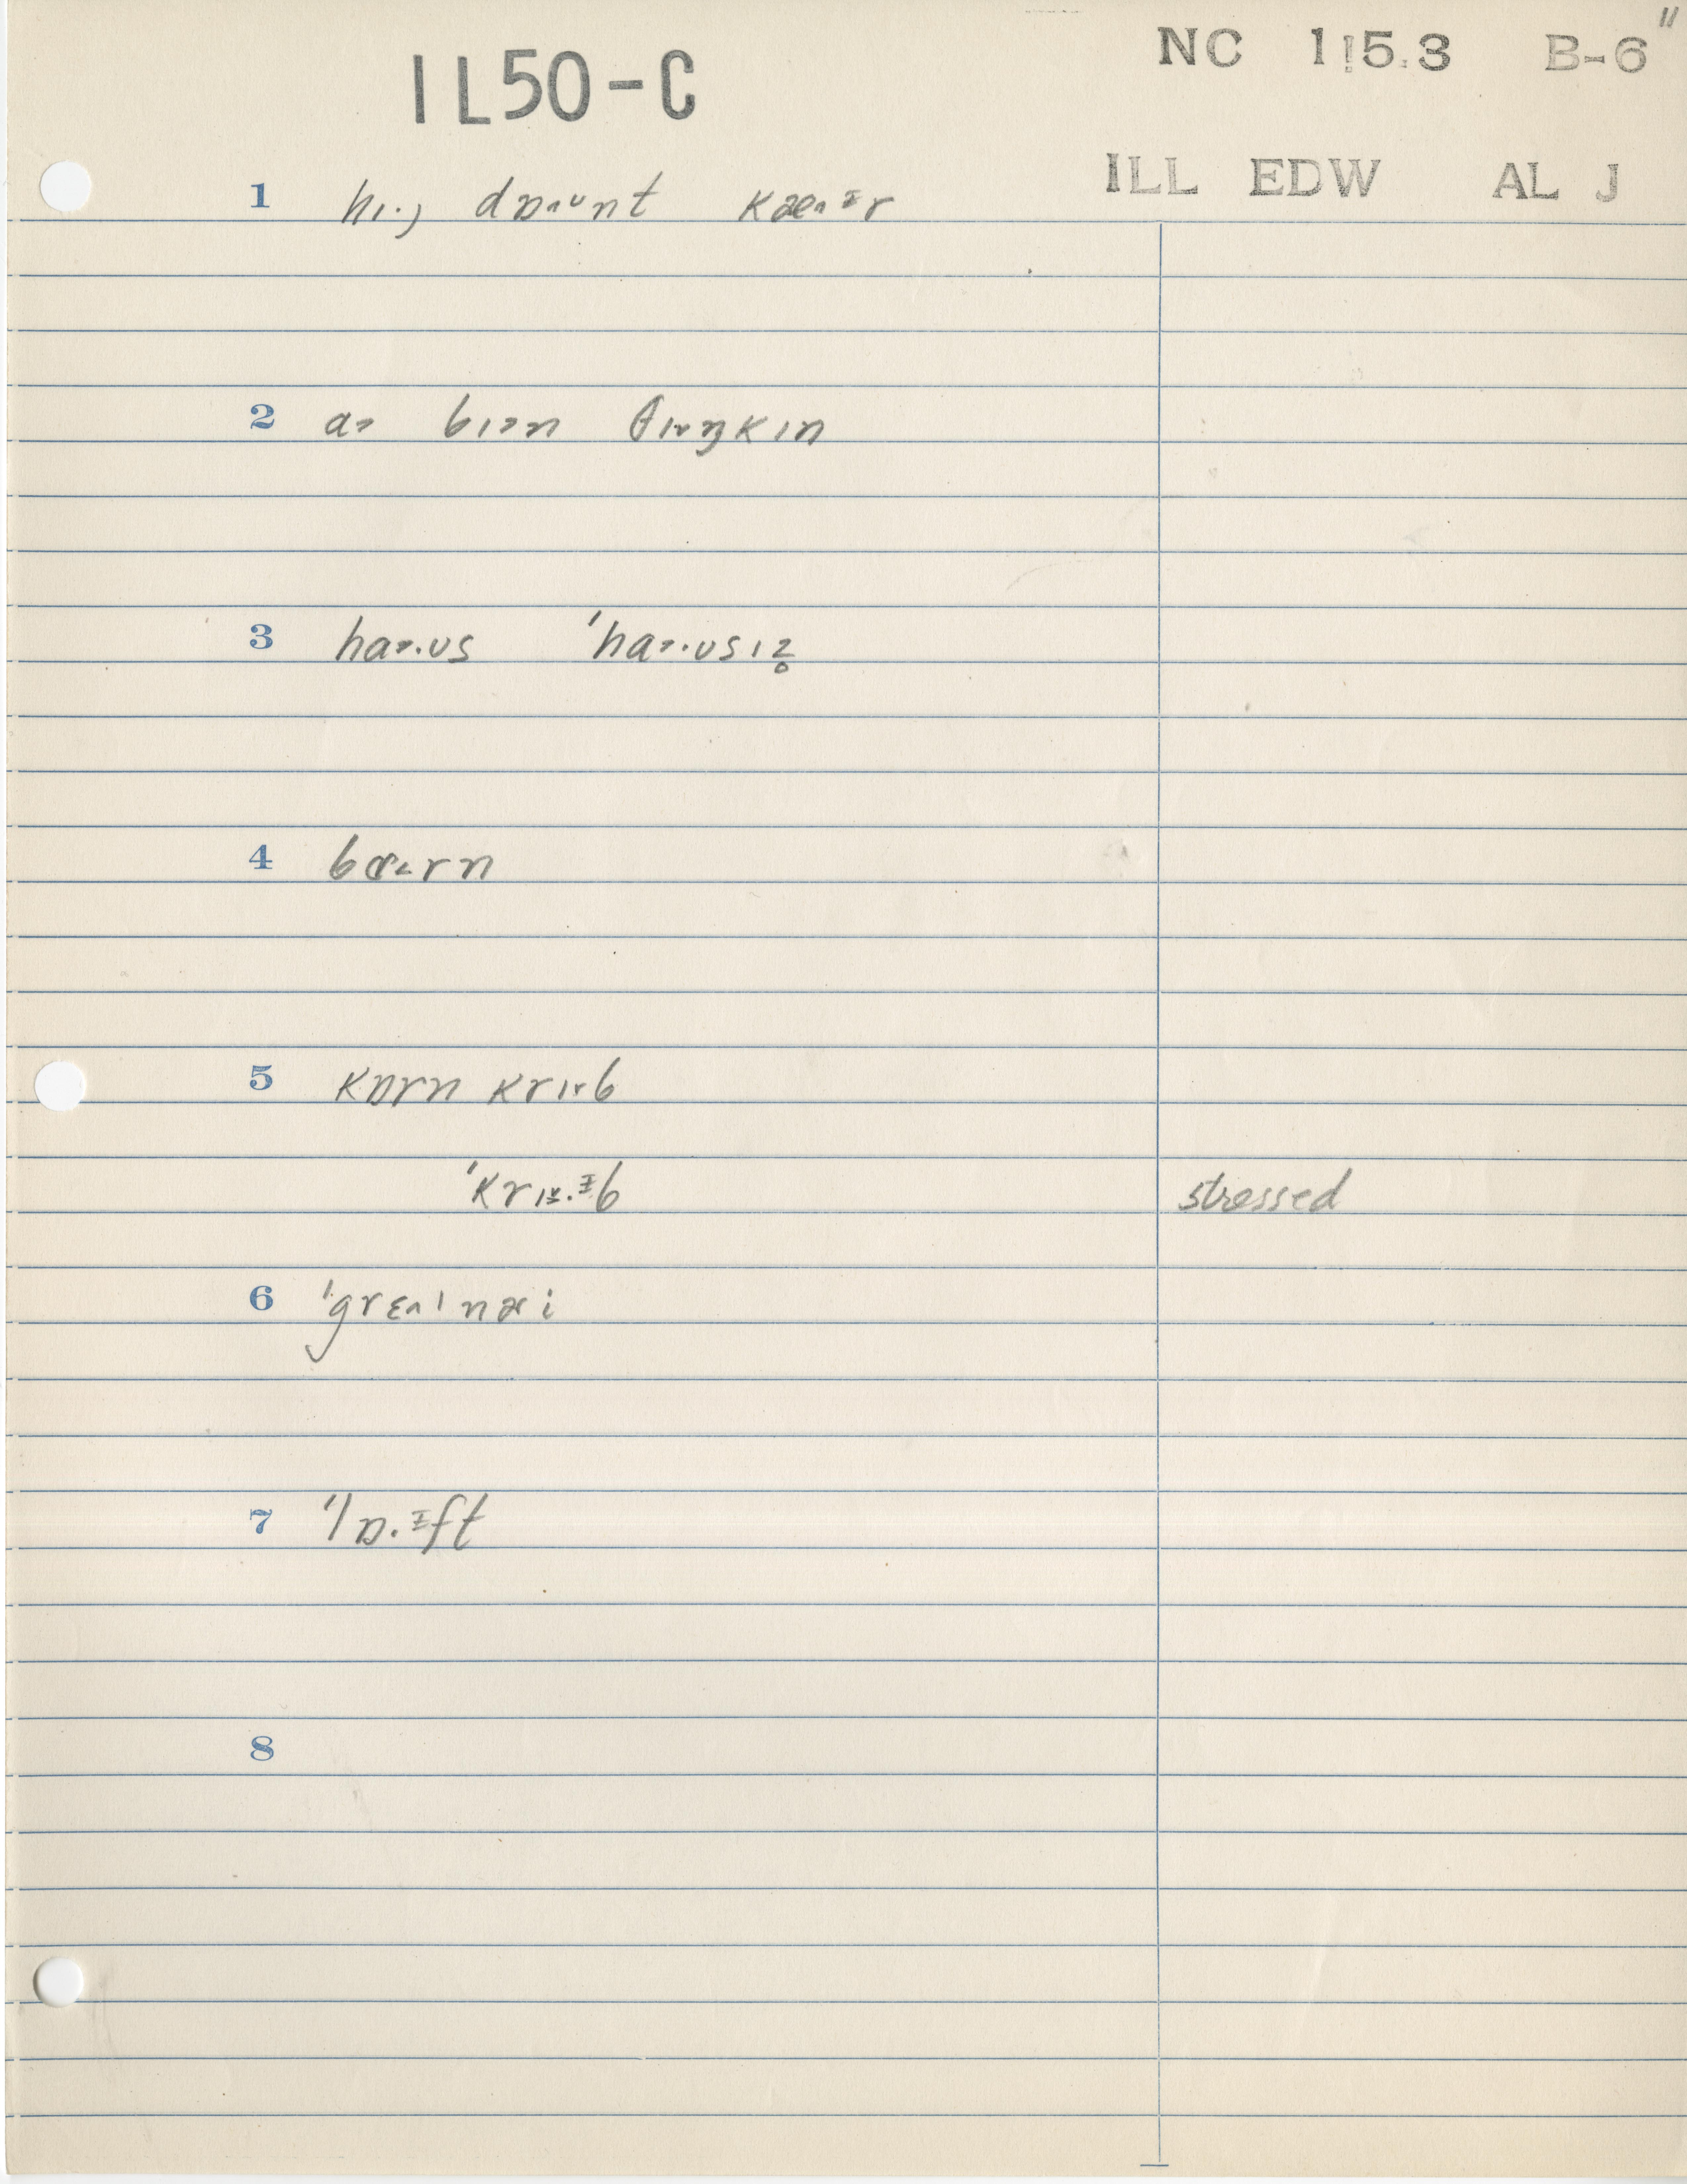 IL50-C
NC 1!5.3 B-6"
ILL EDW AL J
1 hɪ.ɟ dɒ˄ᶷnt kæ˄ᶦr
2 a˃ bɪ˃n θɪ˅ŋkɪn
3 ha˃.ʊs 'ha˃.ʊsɪz̥
4 bɑ˂rn
5 kɒrn krɪ˅b
'krɪ˅.ᶦb stressed
6 'grɛ˄ɪnəri
7 'lɒ.ᶦft
8